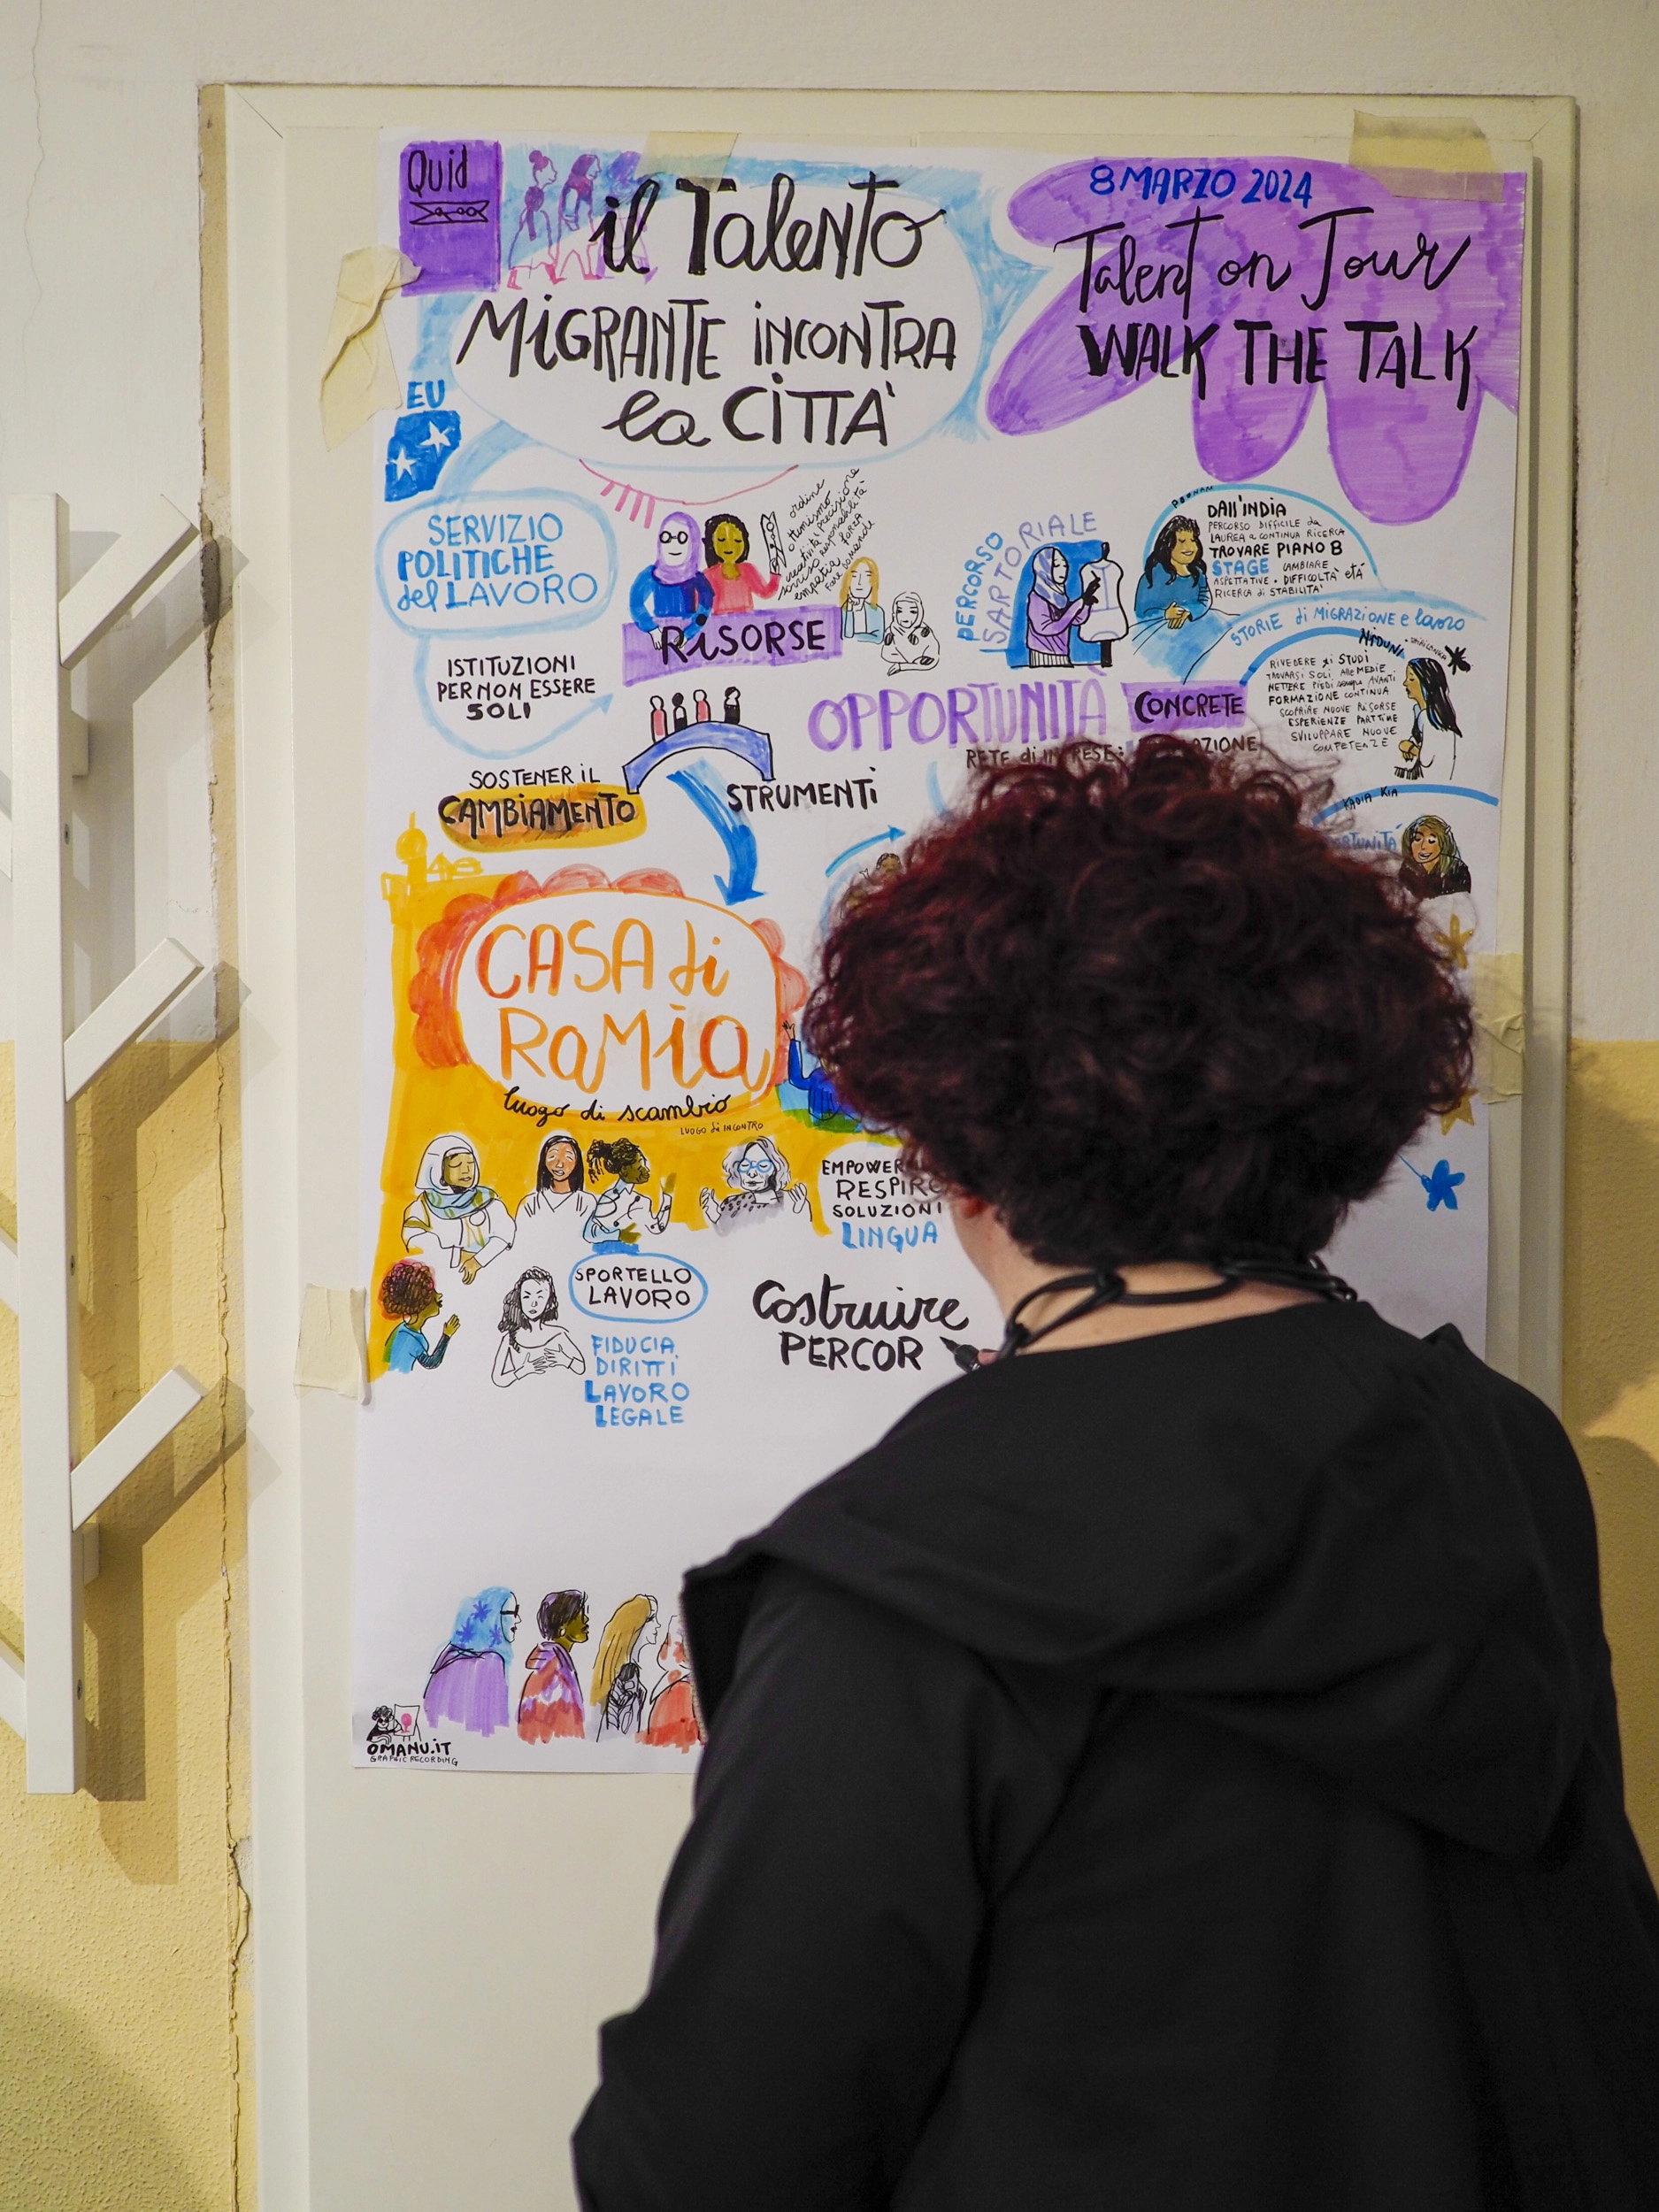 Quid
il Talento
MIGRANTE INCONTRA
la CITTÀ
8 MARZO 2024
Talent on Tour
WALK THE TALK
EU
SERVIZIO
POLITICHE
del LAVORO
ISTITUZIONI
PER NON ESSERE
SOLI
SOSTENER IL
CAMBIAMENTO
ordine
ottimismo
creatività precisione
sorriso responsabilità
empatia FORZA
fare domande
RISORSE
STRUMENTI
PERCORSO
SARTORIALE
OPPORTUNITÀ
CONCRETE
RETE di
POONAM
DALL'INDIA
PERCORSO DIFFICILE da
LAUREA a CONTINUA RICERCA
TROVARE PIANO B
STAGE CAMBIARE
ASPETTATIVE • DIFFICOLTÀ età
RICERCA di STABILITÀ
STORIE di MIGRAZIONE e lavoro
NIDUNI
RIVEDERE gli STUDI
TROVARSI SOLI alle MEDIE
METTERE PIEDI sempre AVANTI
FORMAZIONE CONTINUA
SCOPRIRE NUOVE RISORSE
ESPERIENZE PARTTIME
SVILUPPARE NUOVE
COMPETENZE
KADIA KIA
CASA di
RAMIA
luogo di scambio
LUOGO di INCONTRO
EMPOWER
RESPIRO
SOLUZIONI
LINGUA
SPORTELLO
LAVORO
FIDUCIA
DIRITTI
LAVORO
LEGALE
Costruire
PERCOR
OMANU.IT
GRAPHIC RECORDING